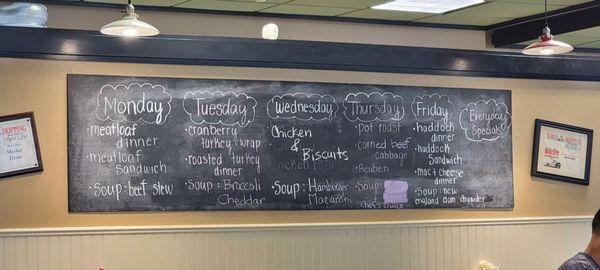 Monday
·meatloaf
dinner
·meatloaf
Sandwich
·Soup: beef stew
Tuesday
·cranberry
turkey wrap
·roasted turkey
dinner
·Soup: Broccoli
Cheddar
Wednesday
·Chicken
&
Biscuits
·Soup: Hamburger
Macaroni
Thursday
·Pot roast
·Corned beef
cabbage
·Reuben
·Soup:
Chef's choice
Friday
·haddock
dinner
·haddock
Sandwich
·mac + cheese
dinner
·Soup: new
england clam chowder
Everyday
Specials